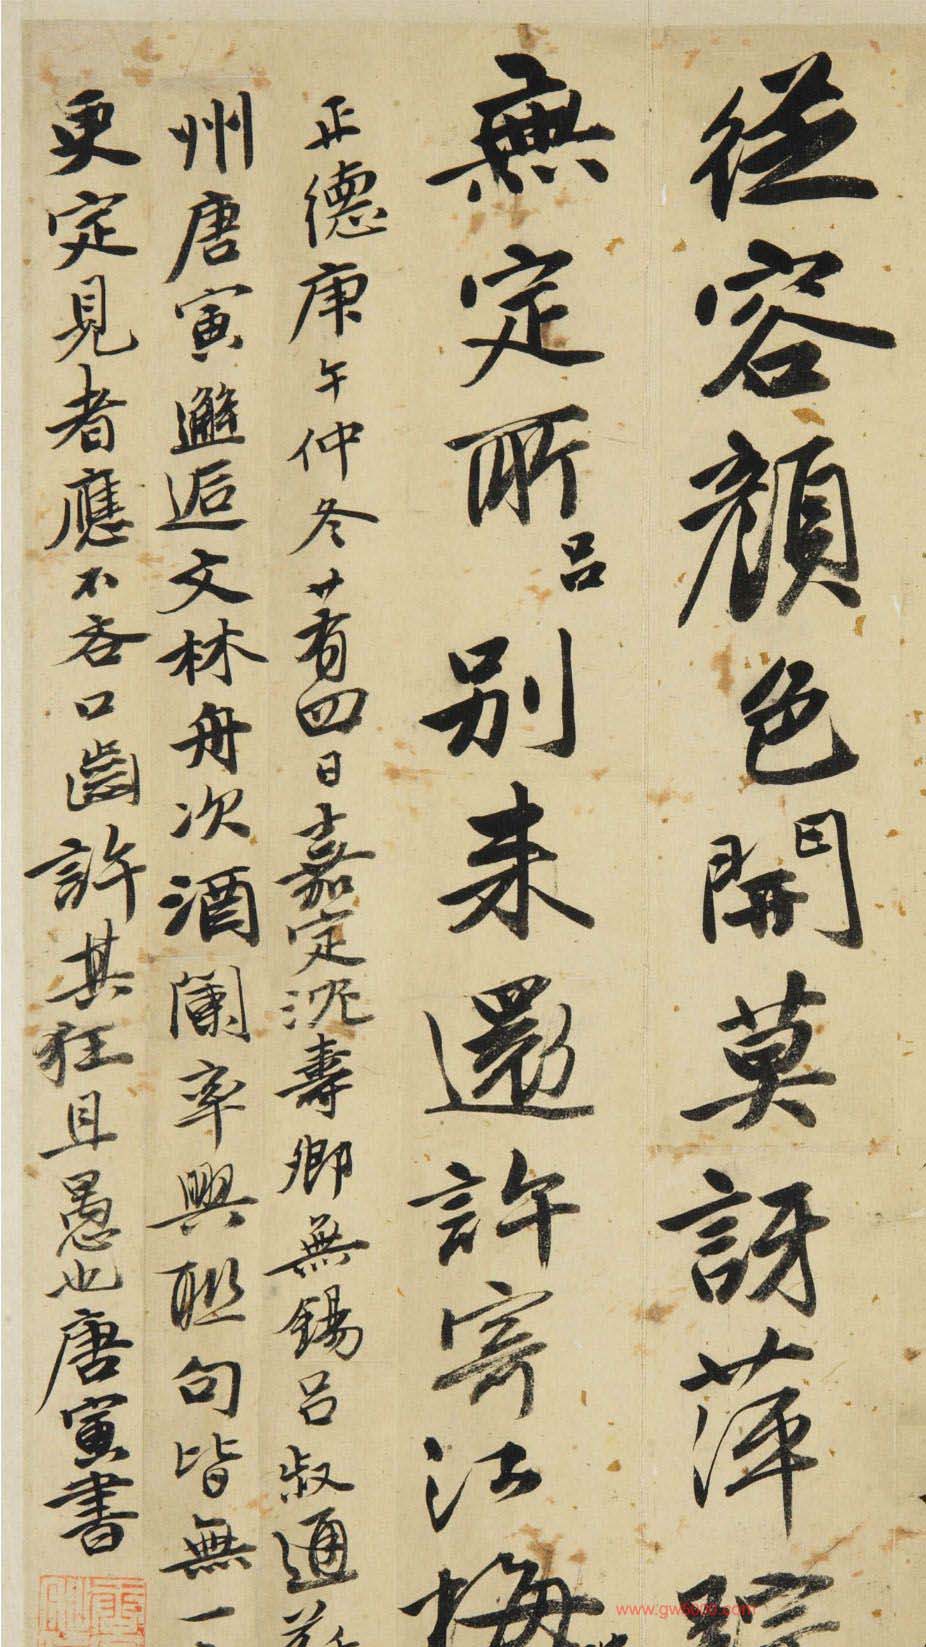 從容顏色開莫訝萍踪
無定所呂別來還許寄江梅
正德庚午仲冬廿有四日嘉定沈壽卿無錫呂叔通蘇
州唐寅邂逅文林舟次酒闌率興聯句皆無一
更定見者應不吝口齒許其狂且愚也唐寅書
www.gw5000.com